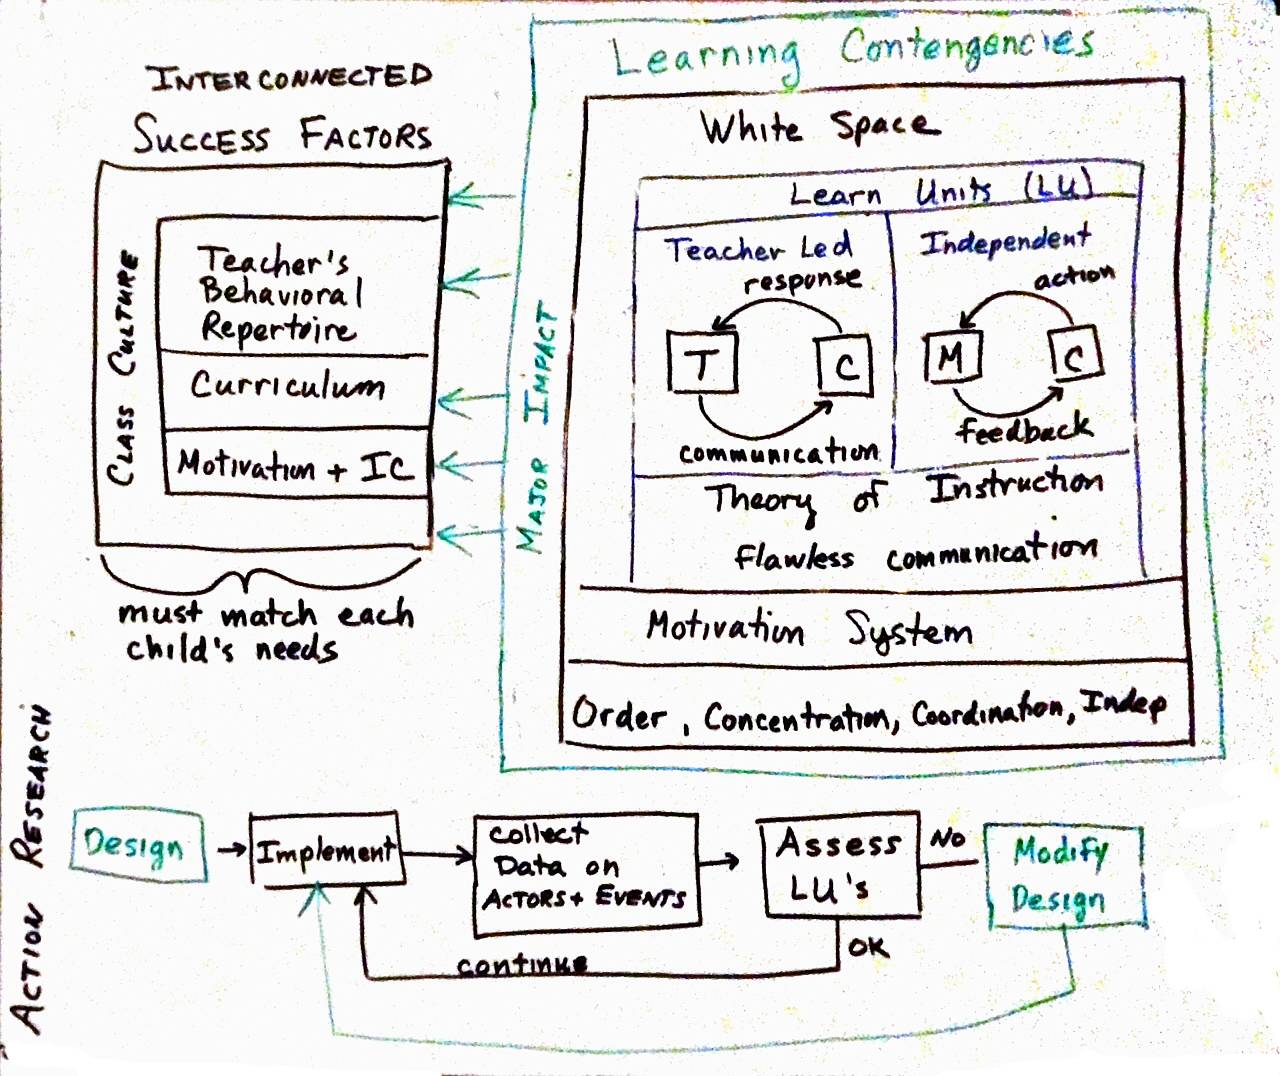 INTERCONNECTED
SUCCESS FACTORS
CLASS CULTURE
Teacher's
Behavioral
Repertoire
Curriculum
Motivation + IC
must match each
child's needs
MAJOR IMPACT
Learning Contengencies
White Space
Learn Units (LU)
Teacher Led
response
T
C
communication
Independent
action
M
C
feedback
Theory of Instruction
flawless communication
Motivation System
Order, Concentration, Coordination, Indep
ACTION RESEARCH
Design
Implement
Collect
Data on
ACTORS + EVENTS
Assess
LU's
No
Modify
Design
OK
continue